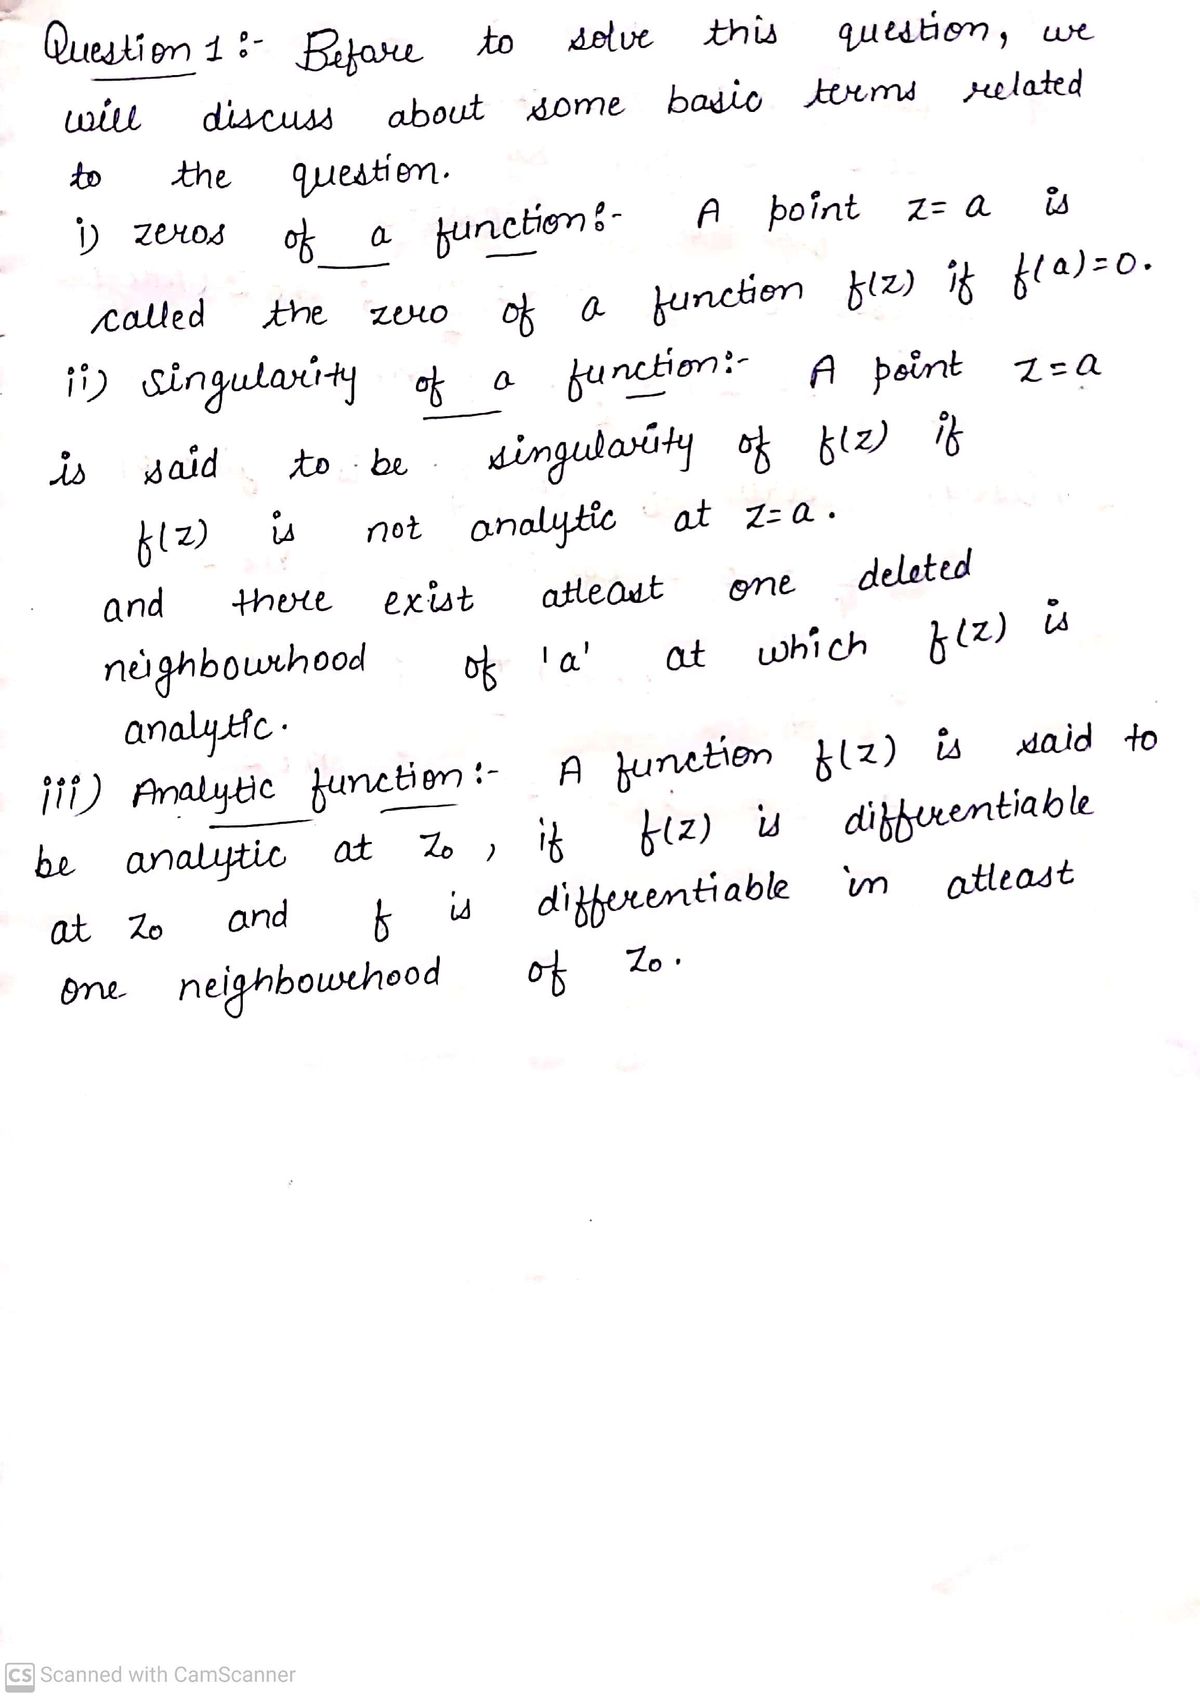 Question 1 :- Before to solve this question, we
will discuss about some basic terms related
to the question.
i) zeros of a function:- A point z= a is
called the zero of a function f(z) if f(a)=0.
ii) singularity of a function:- A point z=a
is said to be singularity of f(z) if
f(z) is not analytic at z=a.
and there exist atleast one deleted
neighbourhood of 'a' at which f(z) is
analytic.
iii) Analytic function:- A function f(z) is said to
be analytic at z₀, if f(z) is differentiable
at z₀ and f is differentiable in atleast
one neighbourhood of z₀.
CS Scanned with CamScanner